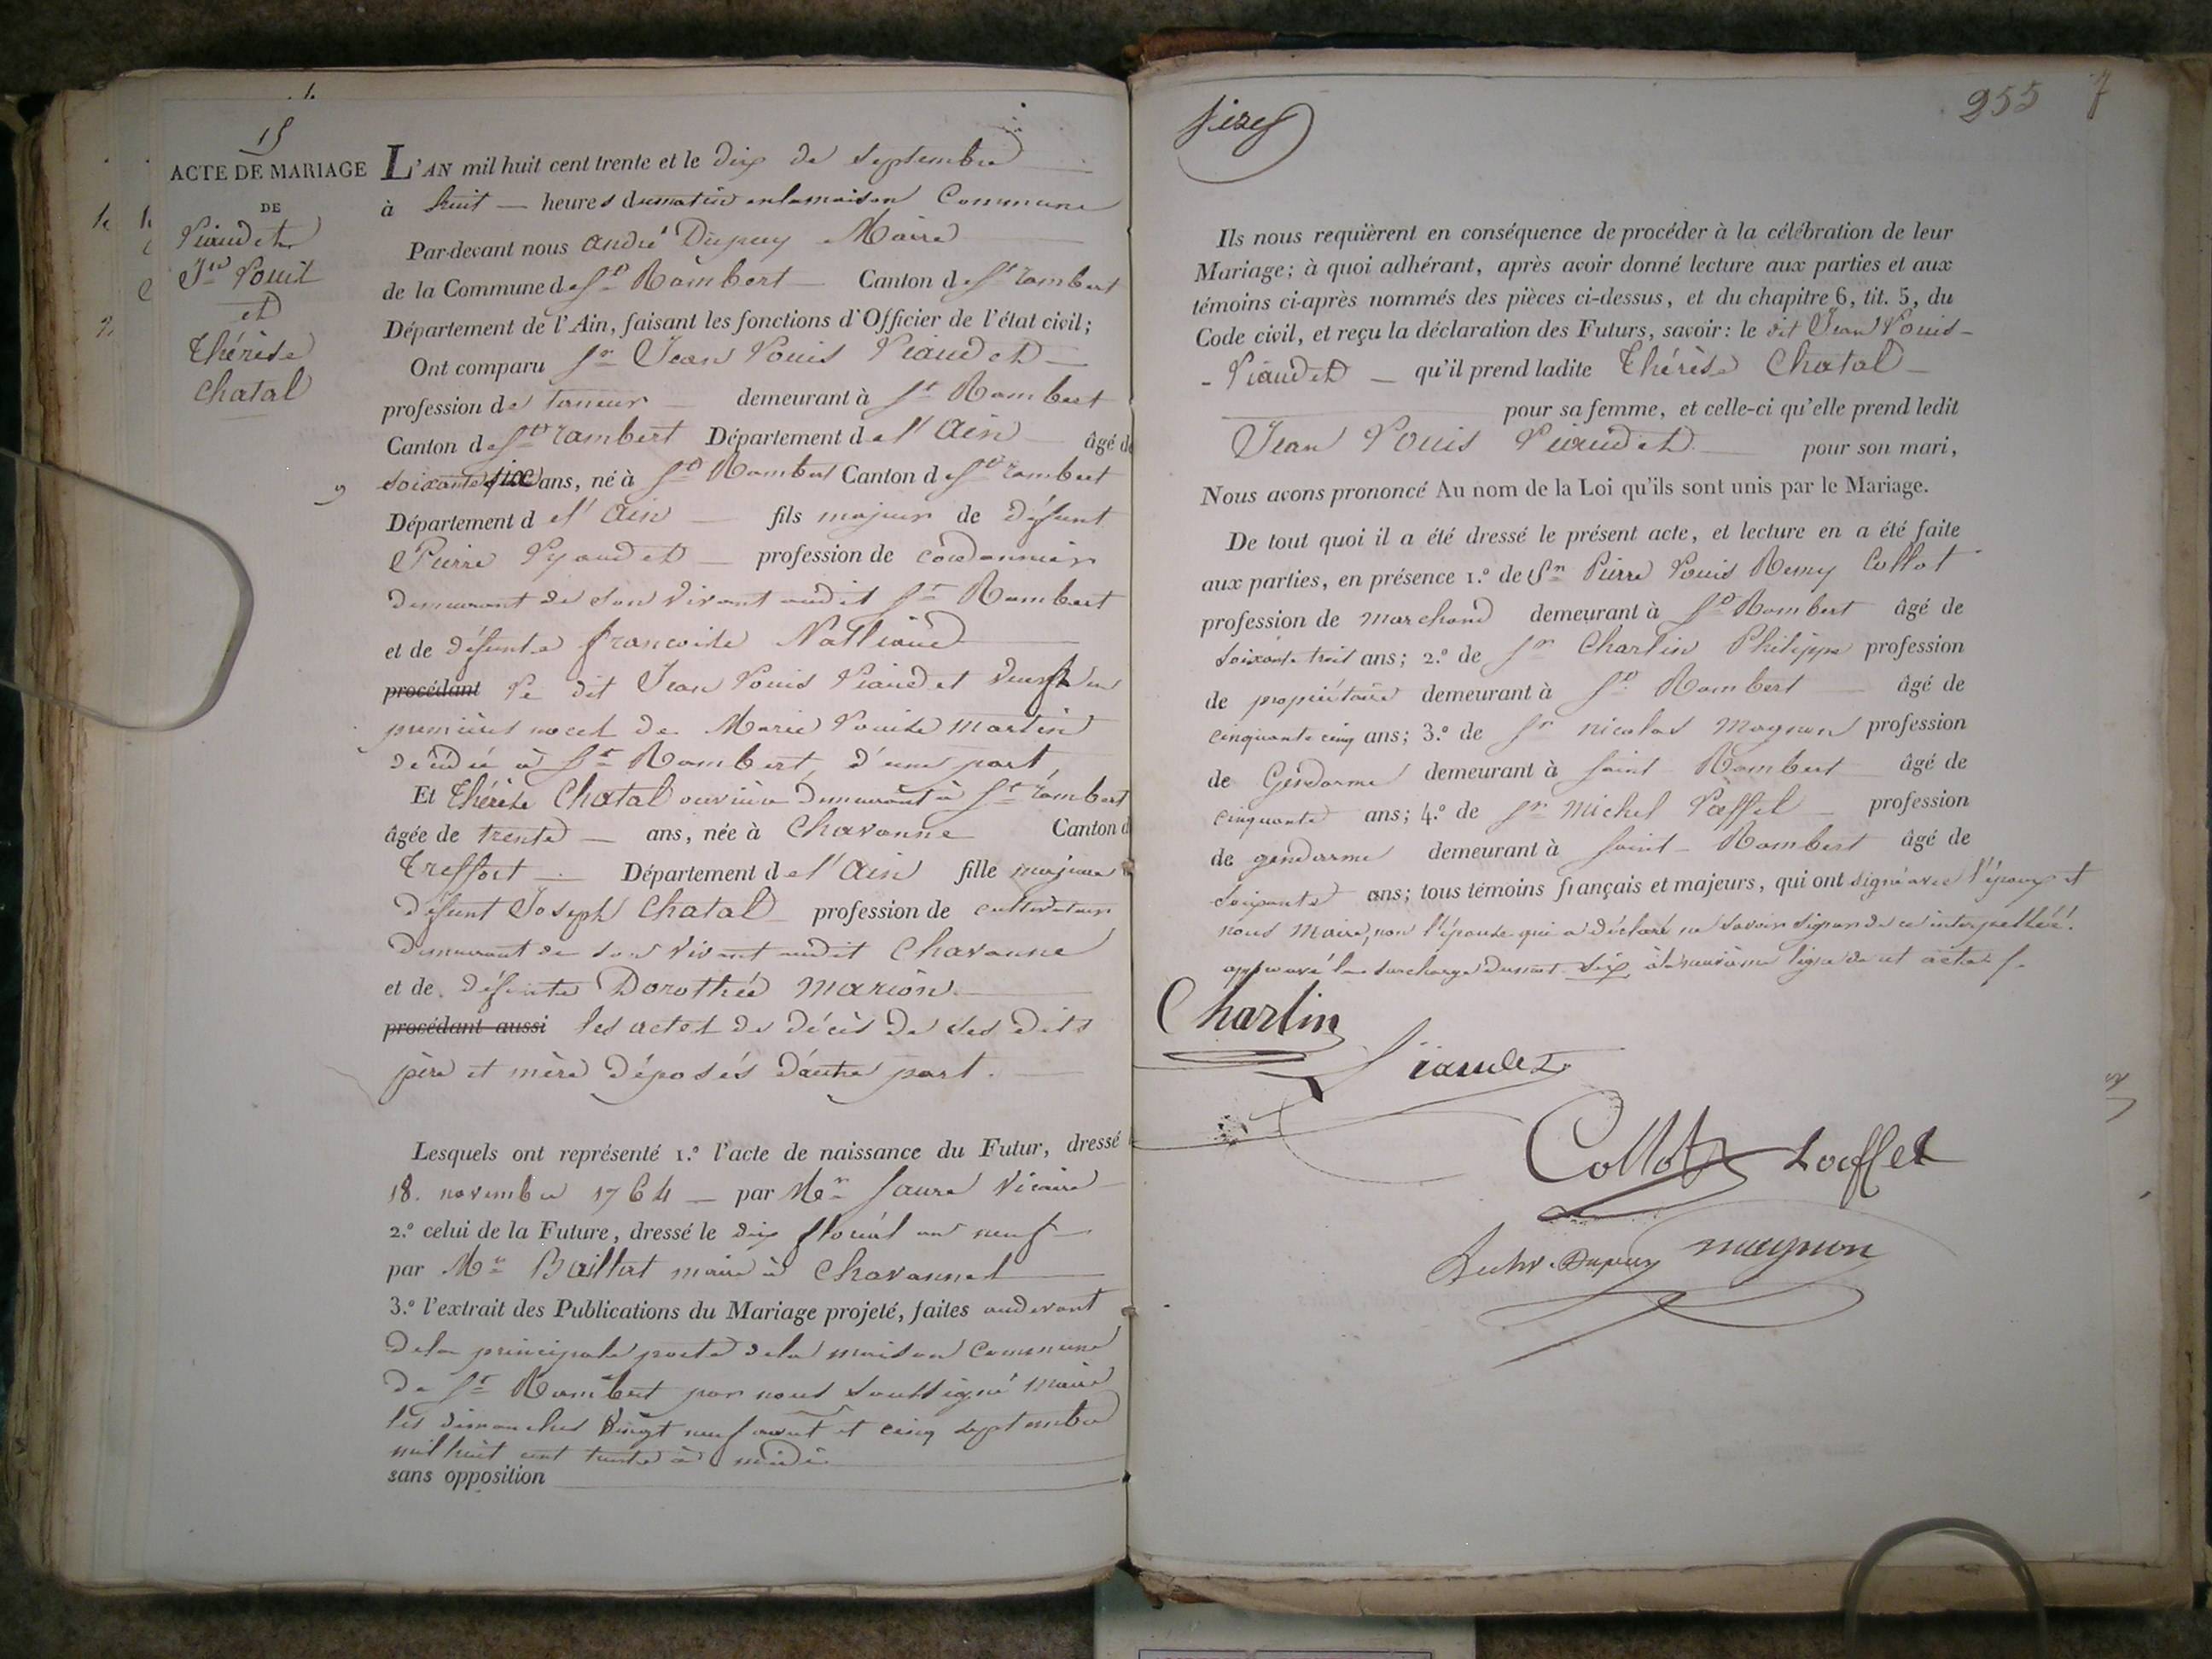 15
ACTE DE MARIAGE
DE
Piaudet
Jn Louis
et
Thérèse
Chatal
L'AN mil huit cent trente et le dix de septembre
à huit heures du matin en la maison Commune
Par-devant nous André Dupuy Maire
de la Commune de St Rambert Canton de St rambert
Département de l'Ain, faisant les fonctions d'Officier de l'état civil;
Ont comparu Sr Jean Louis Piaudet
profession de taneur demeurant à St Rambert
Canton de St rambert Département de l'Ain âgé de
soixante six ans, né à St Rambert Canton de St rambert
Département d el' Ain fils majeur de défunt
Pierre Pyaudet profession de cordonnier
demeurant de son vivant audit St Rambert
et de défunte francoise Nalliaud
procédant Le dit Jean Louis Piaudet veuf en
premières noces de Marie Louise Martin
décédée à St Rambert, d'une part,
Et Thérèse Chatal ouvrière demeurant à St rambert
âgée de trente ans, née à Chavanne Canton d
Treffort Département d el' Ain fille majeure
défunt Joseph Chatal profession de cultivateur
demeurant de son vivant audit Chavanne
et de défunte Dorothée Marion
procédant aussi les actes de décès de ses dits
père et mère déposés d'autre part.
Lesquels ont représenté 1.º l'acte de naissance du Futur, dressé
18. novembre 1764 par Mer faure Vicaire
2.º celui de la Future, dressé le dix floréal an neuf
par Mr Baillet maire à Chavannes
3.º l'extrait des Publications du Mariage projeté, faites audevant
de la principale porte de la maison Commune
de St Rambert par nous soussigné Maire
les dimanches vingt neuf août et cinq septembre
mil huit cent trente à midi
sans opposition
255
Ils nous requièrent en conséquence de procéder à la célébration de leur
Mariage; à quoi adhérant, après avoir donné lecture aux parties et aux
témoins ci-après nommés des pièces ci-dessus, et du chapitre 6, tit. 5, du
Code civil, et reçu la déclaration des Futurs, savoir: le dit Jean Louis
Piaudet qu'il prend ladite Thérèse Chatal
pour sa femme, et celle-ci qu'elle prend ledit
Jean Louis Piaudet pour son mari,
Nous avons prononcé Au nom de la Loi qu'ils sont unis par le Mariage.
De tout quoi il a été dressé le présent acte, et lecture en a été faite
aux parties, en présence 1.º de Sr Pierre Louis Remy Collot
profession de marchand demeurant à St Rambert âgé de
soixante trois ans; 2.º de Sr Charlin Philippe profession
de propriétaire demeurant à St Rambert âgé de
cinquante cinq ans; 3.º de Sr nicolas Magnon profession
de Gendarme demeurant à saint Rambert âgé de
cinquante ans; 4.º de Sr Michel Loeffel profession
de gendarme demeurant à saint Rambert âgé de
soixante ans; tous témoins français et majeurs, qui ont signé avec l'époux et
nous Maire, non l'épouse qui a déclaré ne savoir signer de ce interpellée.
approuvé la surcharge du mot six à la neuvième ligne de cet acte
Charlin
Piaudet
Collot Loeffel
Dupuy magnon